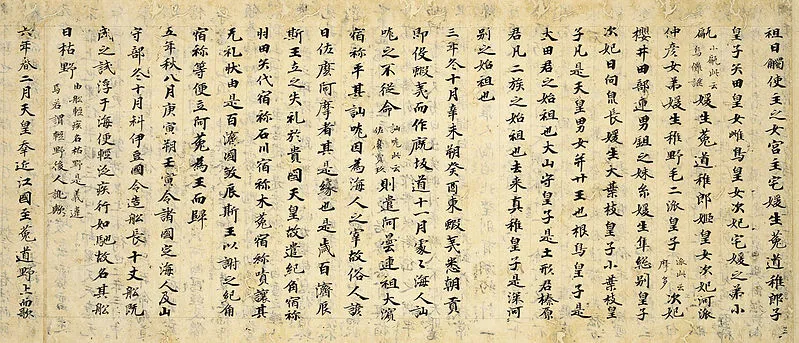 祖日觸使主之女宮主宅媛生菟道稚郎子
皇子矢田皇女雌鳥皇女次妃宅媛之弟小
甂小甂此云烏儺謎媛生菟道稚郎姬皇女次妃河派
仲彦女弟媛生稚野毛二派皇子派此云摩多次妃
櫻井田部連男鉏之妹糸媛生隼総別皇子
次妃日向泉長媛生大葉枝皇子小葉枝皇
子凡是天皇男女并廿王也根鳥皇子是
大田君之始祖也大山守皇子是土形君榛原
君凡二族之始祖也去来真稚皇子是深河
別之始祖也
三年冬十月辛未朔癸酉東蝦夷悉朝貢
即役蝦夷而作厩坂道十一月處々海人訕
哤之不従命訕哤此云佐麼賣玖則遣阿曇連祖大濱
宿祢平其訕哤因為海人之宰故俗人諺
曰佐麼阿摩者其是緣也是歳百濟辰
斯王立之失礼於貴國天皇故遣紀角宿祢
羽田矢代宿祢石川宿祢木菟宿祢嘖讓其
无礼状由是百濟國敦辰斯王以謝之紀角
宿祢等便立阿菀為王而歸
五年秋八月庚寅朔壬寅令諸國定海人及山
守部冬十月科伊豆國令造舩長十丈舩既
成之試浮于海便輕泛疾行如馳故名其舩
曰枯野由舩輕疾名枯野是義違焉若謂輕野後人訛歟
六年春二月天皇幸近江國至菟道野上而歌